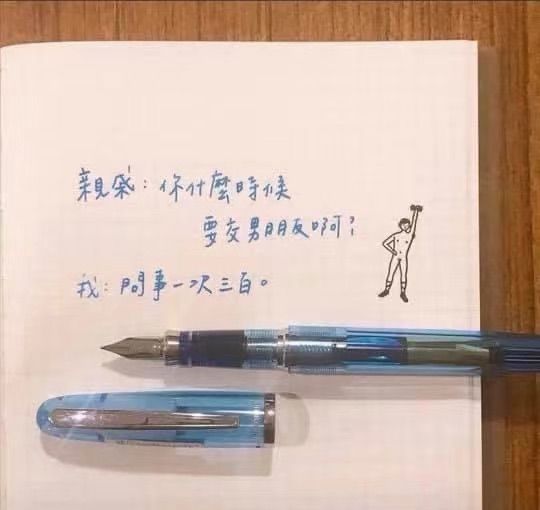 親戚：你什麼時候
要交男朋友啊？
我：問事一次三百。